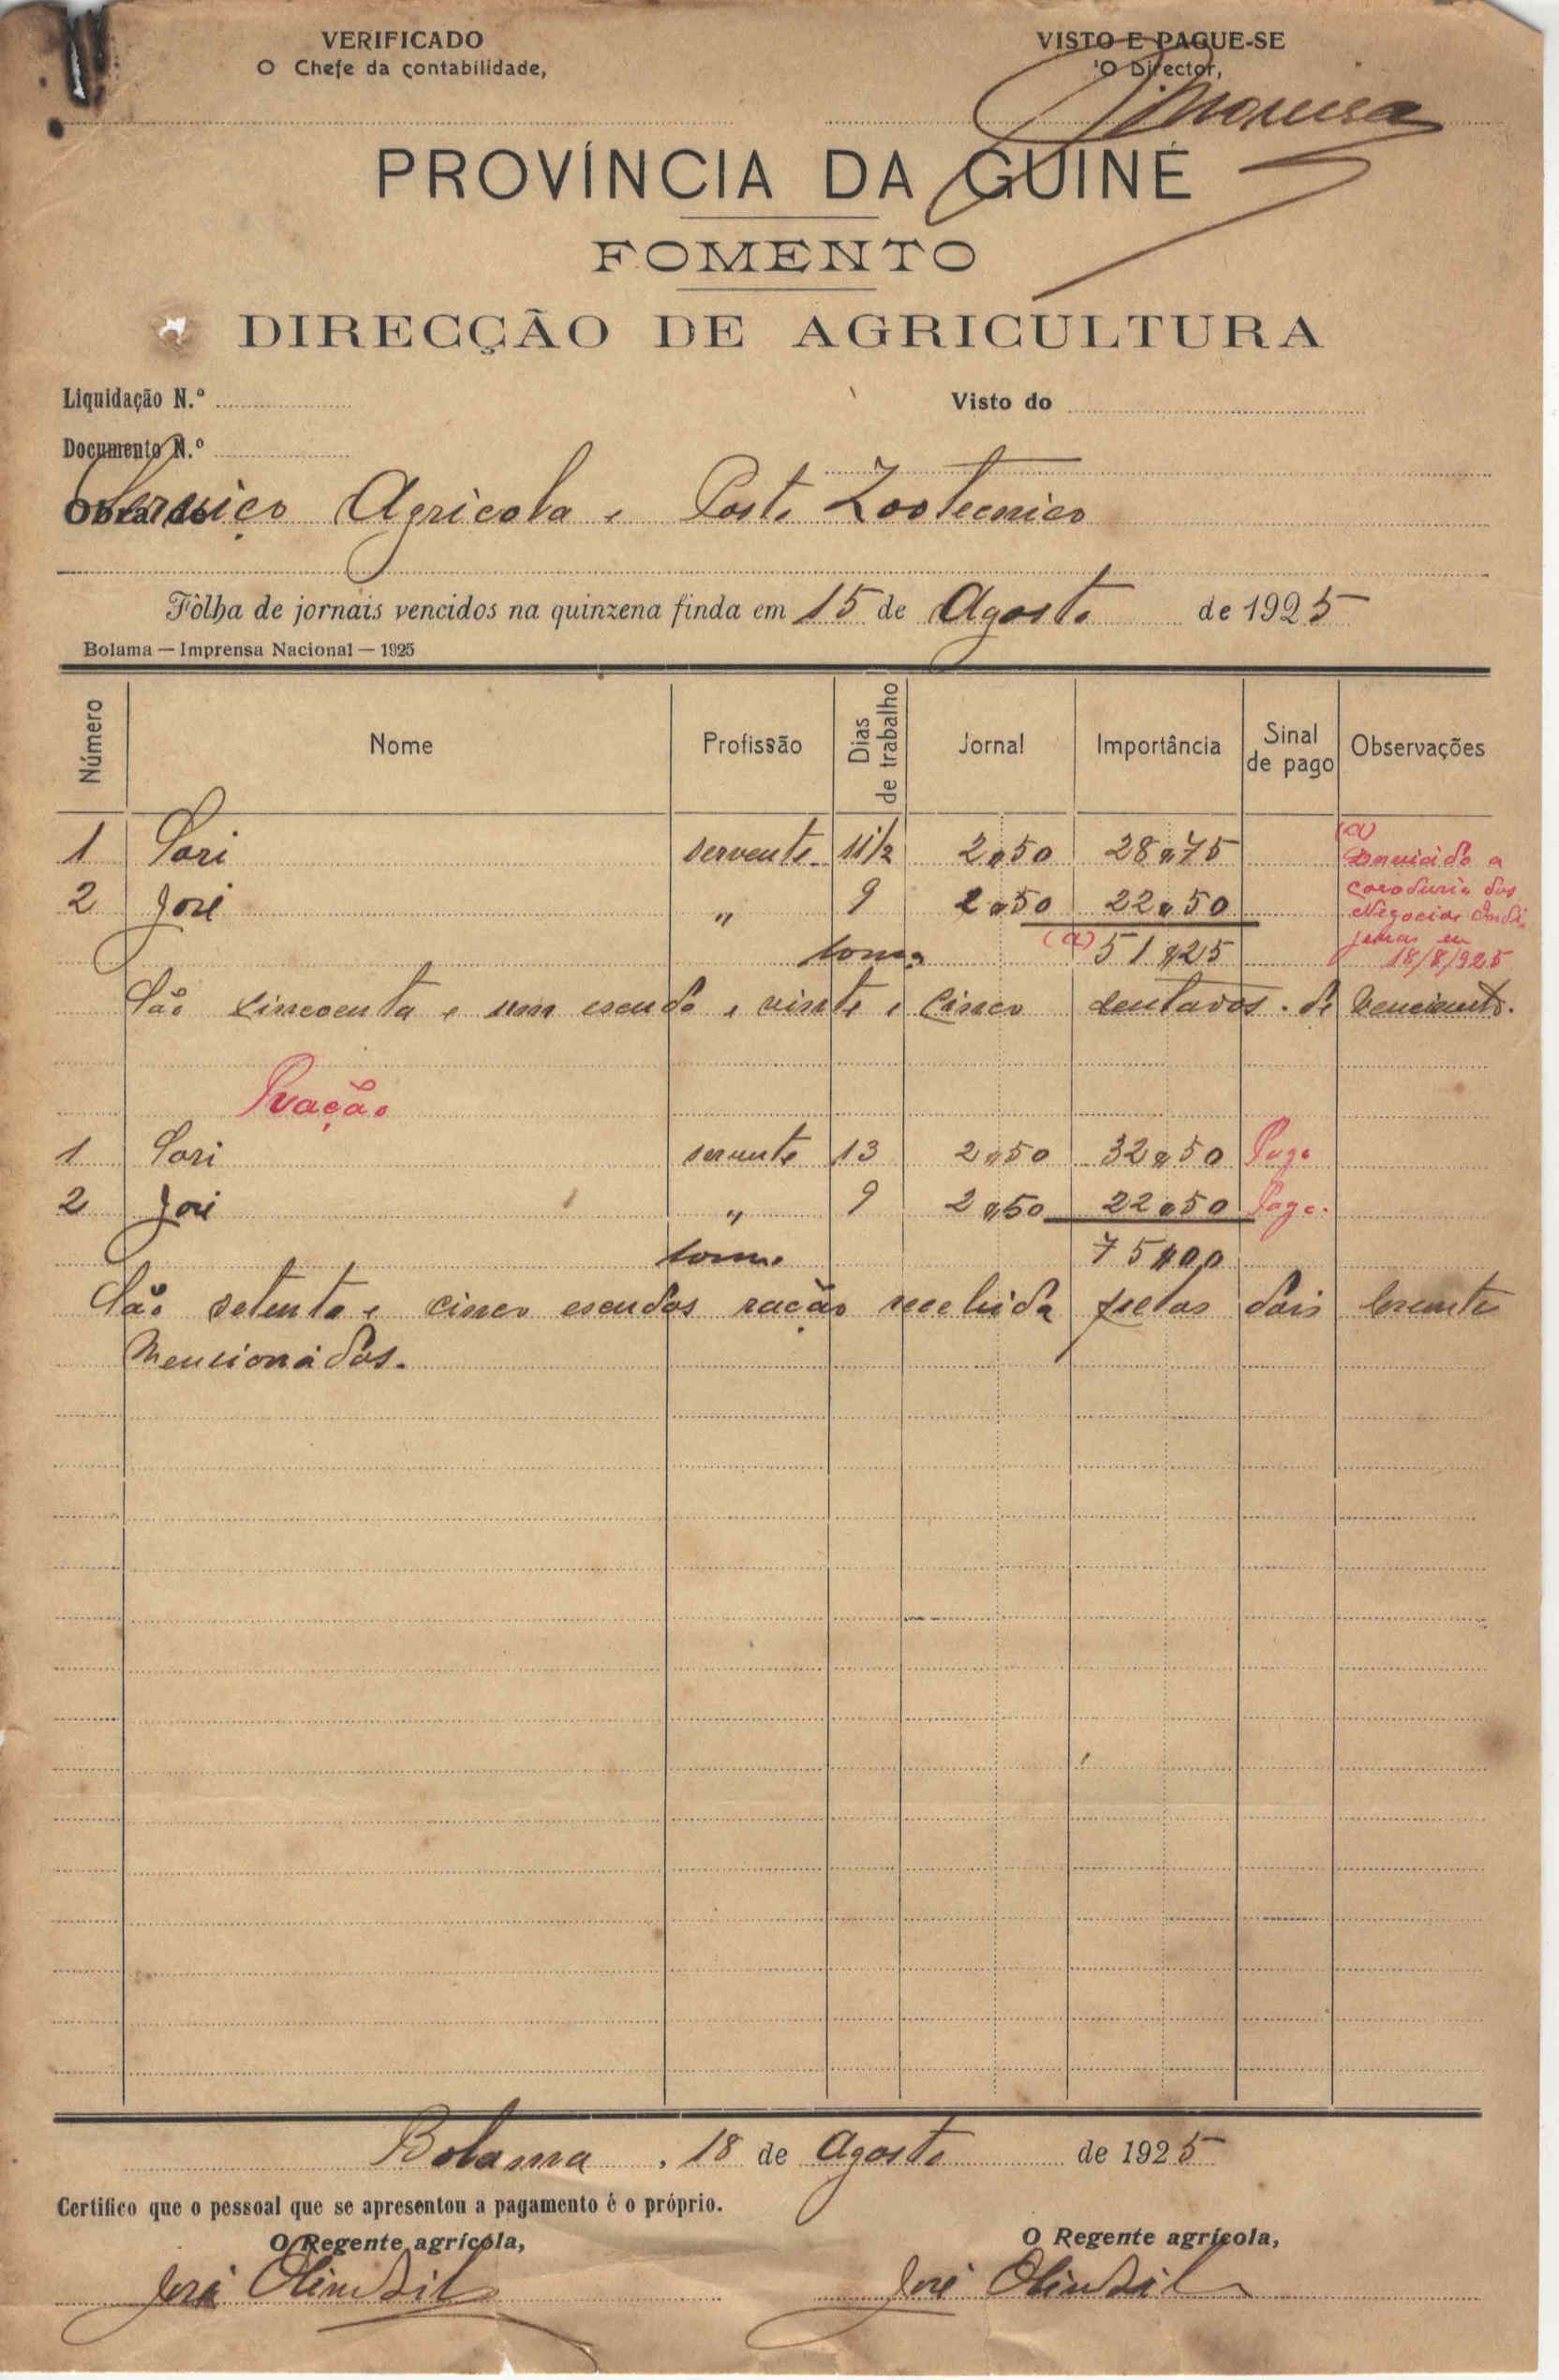 VERIFICADO
O Chefe da contabilidade,
VISTO E PAGUE-SE
O Director,
PROVÍNCIA DA GUINÉ
FOMENTO
DIRECÇÃO DE AGRICULTURA
Liquidação N.º
Visto do
Documento N.º
Obra de Serviço Agricola e Posto Zootecnico
Fôlha de jornais vencidos na quinzena finda em 15 de Agosto de 1925
Bolama — Imprensa Nacional — 1925
Número Nome Profissão Dias de trabalho Jornal Importância Sinal de pago Observações
1 Sori servente 11 1/2 2$50 28$75
2 José " 9 2$50 22$50
soma (a) 51$25
(a)
Enviado a
Coradoria dos
Negocios Indi
jenas em
18/8/925
São cincoenta e um escudo e vinte e cinco centavos de vencimento.
Ração
1 Sori servente 13 2$50 32$50 Pago
2 José " 9 2$50 22$50 Pago.
soma 75$00
São setenta e cinco escudos ração recebida pelos dois servente
mencionados.
Bolama, 18 de Agosto de 1925
Certifico que o pessoal que se apresentou a pagamento é o próprio.
O Regente agrícola,
José
O Regente agrícola,
José